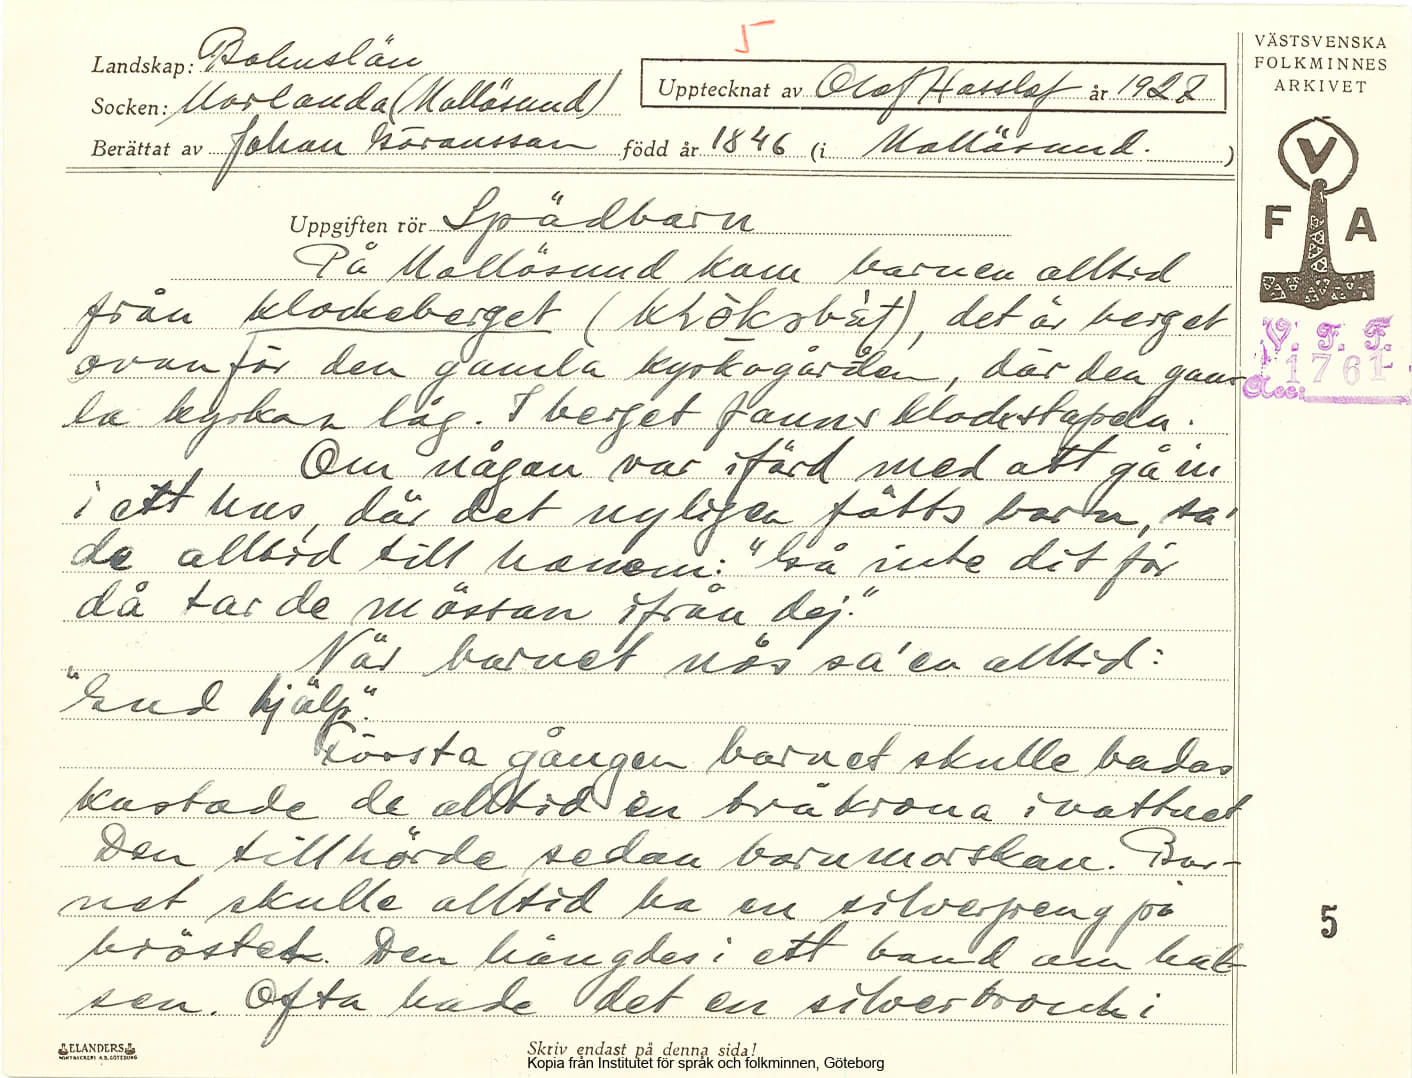 5
Landskap: Bohuslän
Socken: Morlanda (Mollösund)
Upptecknat av Olof Hasslöf år 1927
Berättat av Johan Göransson född år 1846 (i Mollösund.)
VÄSTSVENSKA
FOLKMINNES
ARKIVET
V
F A
V. F. F.
1761
Acc:
Uppgiften rör Spädbarn
På Mollösund kom barnen alltid
från klockeberget (                ), det är berget
ovanför den gamla kyrkogården, där den gam-
la kyrkan låg. I berget fanns klockstapeln.
Om någon var ifärd med att gå in
i ett hus, där det nyligen fötts barn, sa'
de alltid till honom: "Gå inte dit för
då tar de mössan ifrån dej."
När barnet nös sa'en alltid:
"Gud hjälp".
Första gången barnet skulle badas
kastade de alltid en tvåkrona i vattnet
Den tillhörde sedan barnmorskan. Bar-
net skulle alltid ha en silverpeng på
bröstet. Den hängdes i ett band om hal-
sen. Ofta hade det en silverbrosch i
5
ELANDERS
Skriv endast på denna sida!
Kopia från Institutet för språk och folkminnen, Göteborg